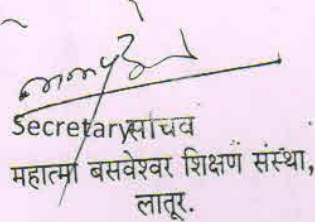 Secretary/सचिव
महात्मा बसवेश्वर शिक्षण संस्था,
लातूर.